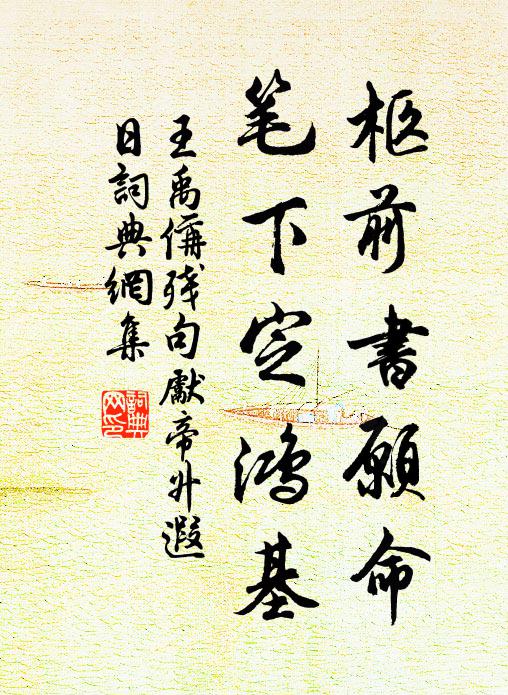 柩前書願命
笔下定鴻基
王禹偁残句獻帝升遐
日詞典網集
詞典网印